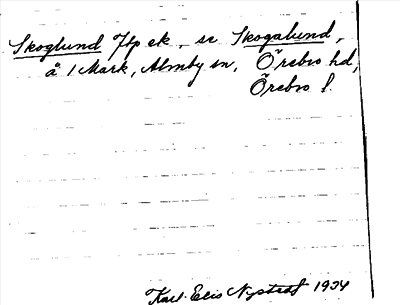 Skoglund Hp ek, se Skogalund,
å 1 Mark, Almby sn, Örebro hd,
Örebro l.
Karl-Elis Nystedt 1934